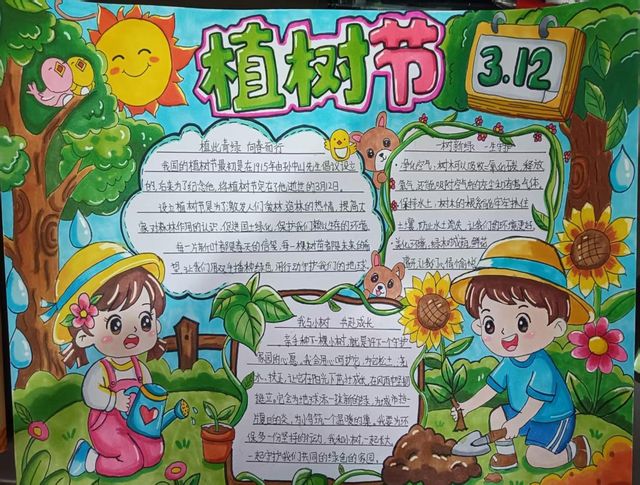 植树节
3.12
植此青绿 向春而行
我国的植树节最初是在1915年由孙中山先生倡议设立
的,后来为了纪念他,将植树节定在了他逝世的3月12日。
设立植树节是为了激发人们爱林 造林的热情,提高大
家对森林作用的认识,促进国土绿化,保护我们赖以生存的环境。
每一片新叶都限春天的信笺,每一棵树苗都是未来的希
望,让我们用双手播种绿意,用行动守护我们的地球。
一树新绿 一生守护
净化空气:树木可以吸收二氧化碳,释放
氧气,还能吸附空气中的灰尘和有害气体。
保持水土:树木的根系能牢牢抓住
土壤,防止水土流失,让我们的环境更好
美化环境:绿树成荫,鲜花
我与小树 共赴成长
亲手种下一棵小树,就是许下一个守护
家园的心愿,我会用心呵护它,为它松土、浇
水、扶正,让它在阳光下茁壮成长,在风雨中坚韧
挺立。它会为地球添一抹新的绿,为城市挡
一片夏日的炎,为小鸟筑一个温暖的巢。我要为环
保多一份坚持的行动,我和小树一起长大,
一起守护我们共同的绿色的家园。